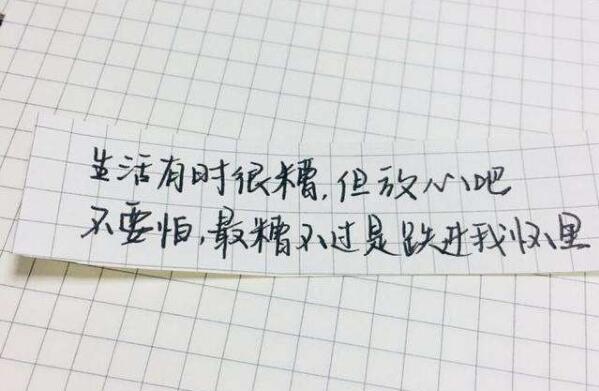 生活有时很糟,但放心吧
不要怕,最糟不过是跌进我怀里